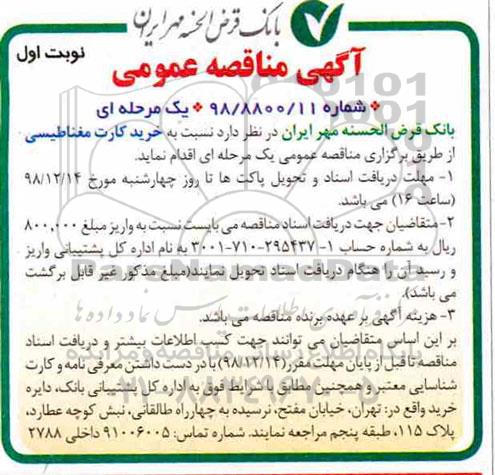 بانک قرض الحسنه مهر ایران
نوبت اول
آگهی مناقصه عمومی
شماره ۹۸/۸۸۰۰/۱۱ یک مرحله ای
بانک قرض الحسنه مهر ایران در نظر دارد نسبت به خرید کارت مغناطیسی
از طریق برگزاری مناقصه عمومی یک مرحله ای اقدام نماید.
۱- مهلت دریافت اسناد و تحویل پاکت ها تا روز چهارشنبه مورخ ۹۸/۱۲/۱۴
(ساعت ۱۶) می باشد.
۲- متقاضیان جهت دریافت اسناد مناقصه می بایست نسبت به واریز مبلغ ۸۰۰,۰۰۰
ریال به شماره حساب ۱-۲۹۵۴۳۷-۷۱۰-۳۰۰۱ به نام اداره کل پشتیبانی واریز
و رسید آن را هنگام دریافت اسناد تحویل نمایند(مبلغ مذکور غیر قابل برگشت
می باشد).
۳- هزینه آگهی بر عهده برنده مناقصه می باشد.
بر این اساس متقاضیان می توانند جهت کسب اطلاعات بیشتر و دریافت اسناد
مناقصه تا قبل از پایان مهلت مقرر (۹۸/۱۲/۱۴) با در دست داشتن معرفی نامه و کارت
شناسایی معتبر و همچنین مطابق با شرایط فوق به اداره کل پشتیبانی بانک، دایره
خرید واقع در: تهران، خیابان مفتح، نرسیده به چهارراه طالقانی، نبش کوچه عطارد،
پلاک ۱۱۵، طبقه پنجم مراجعه نمایند. شماره تماس: ۹۱۰۰۶۰۰۵ داخلی ۲۷۸۸
ParsNamadData